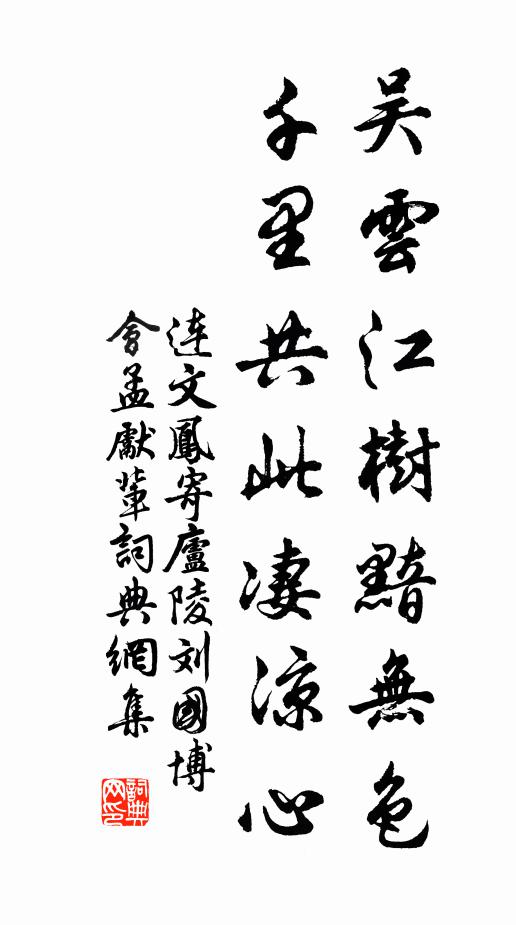 吴雲江樹黯無色
千里共此凄涼心
连文鳳寄廬陵刘國博
會孟獻輩詞典網集
詞典
网印